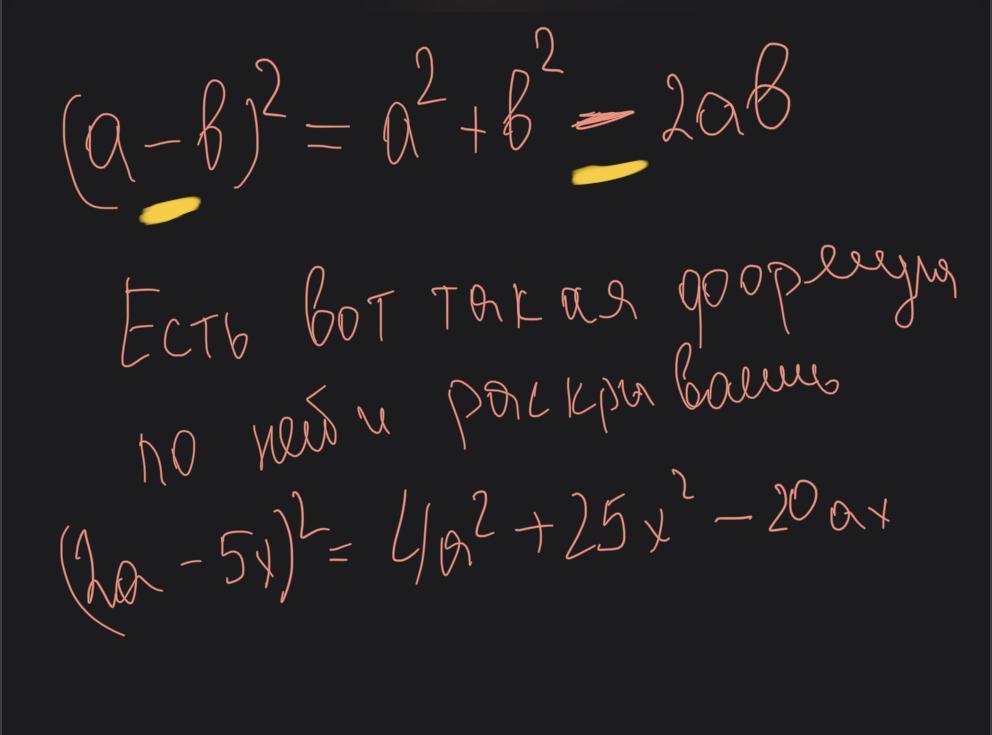 (a - b)² = a² + b² - 2ab
Есть вот такая формула
по ней и раскрываешь
(2a - 5x)² = 4a² + 25x² - 20ax